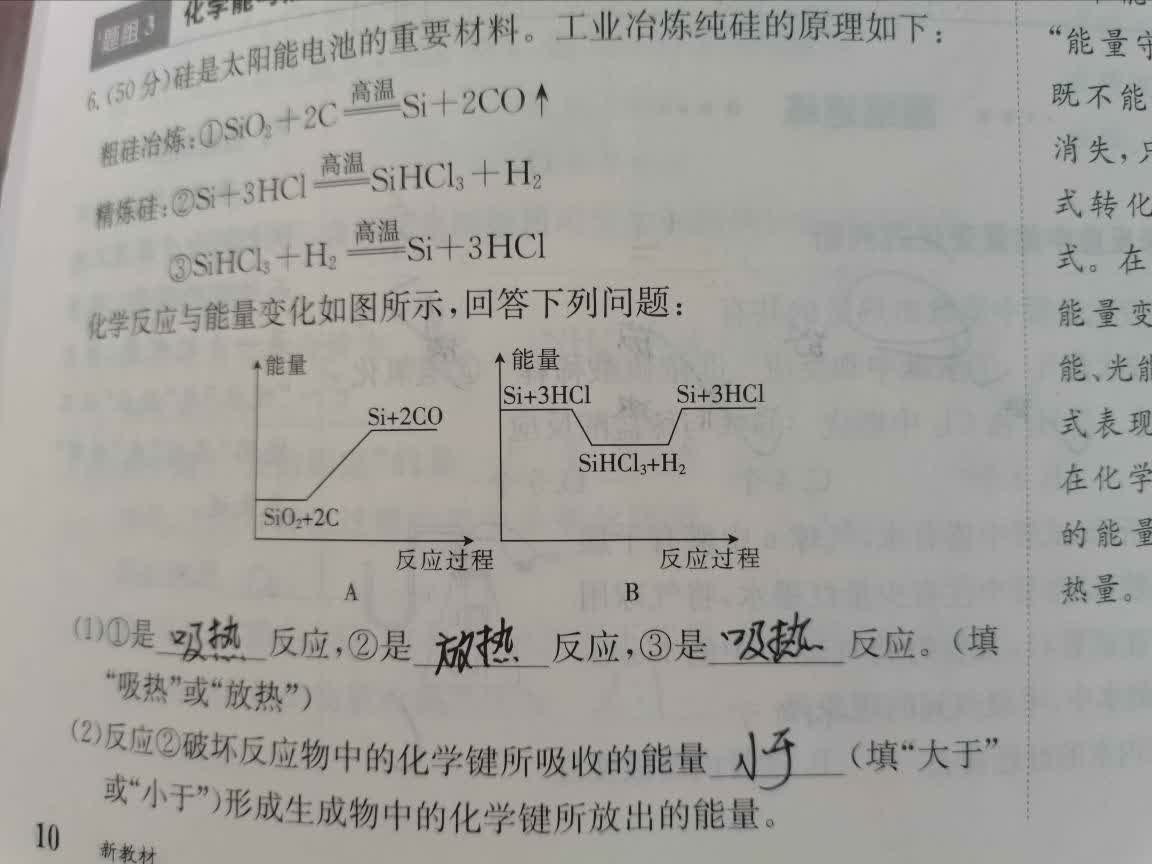 题组3
化学能与
6.(50分)硅是太阳能电池的重要材料。工业冶炼纯硅的原理如下:
粗硅冶炼:①SiO₂+2C 高温 Si+2CO↑
精炼硅:②Si+3HCl 高温 SiHCl₃+H₂
③SiHCl₃+H₂ 高温 Si+3HCl
化学反应与能量变化如图所示,回答下列问题:
能量
Si+2CO
SiO₂+2C
反应过程
A
能量
Si+3HCl
Si+3HCl
SiHCl₃+H₂
反应过程
B
(1)①是 吸热 反应,②是 放热 反应,③是 吸热 反应。(填
“吸热”或“放热”)
(2)反应②破坏反应物中的化学键所吸收的能量 小于 (填“大于”
或“小于”)形成生成物中的化学键所放出的能量。
10
新教材
“能量守
既不能
消失,只
式转化
式。在
能量变
能、光能
式表现
在化学
的能量
热量。